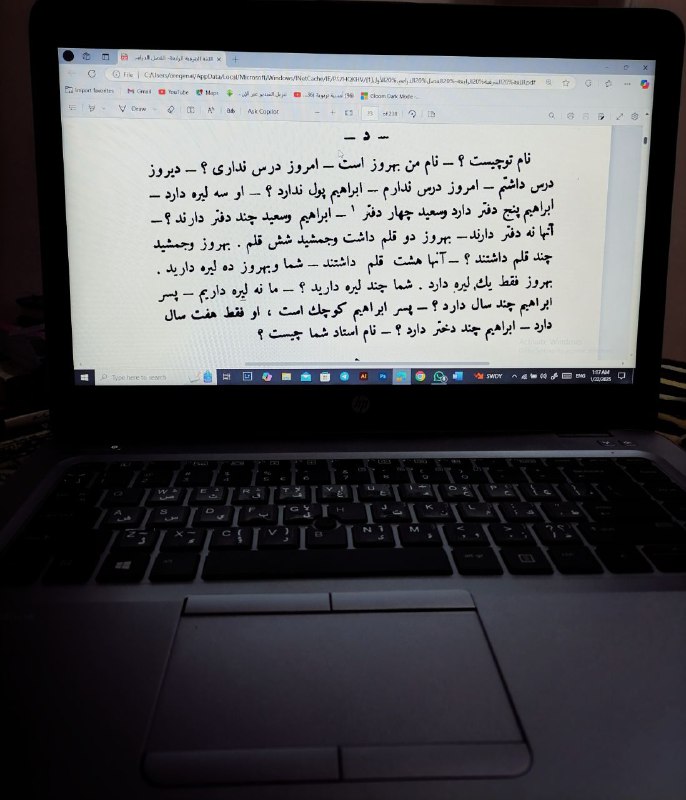 اللغة الشرقية الرابعة- الفصل الدراس
File
Import favorites
Gmail
YouTube
Maps
(96) أمسية تربوية (36...
Gloom Dark Mode
Draw
Ask Copilot
23
of 238
— د —
نام توچیست ؟ — نام من بهروز است — امروز درس نداری ؟ — دیروز
درس داشتم — امروز درس ندارم — ابراهیم پول ندارد ؟ — او سه لیره دارد —
ابراهیم پنج دفتر دارد وسعید چهار دفتر ۱ — ابراهیم وسعید چند دفتر دارند ؟ —
آنها نه دفتر دارند — بهروز دو قلم داشت وجمشید شش قلم . بهروز وجمشید
چند قلم داشتند ؟ — آنها هشت قلم داشتند — شما وبهروز ده لیره دارید .
بهروز فقط یك لیره دارد . شما چند لیره دارید ؟ — ما نه لیره داریم — پسر
ابراهیم چند سال دارد ؟ — پسر ابراهیم کوچك است ، او فقط هفت سال
دارد — ابراهیم چند دختر دارد ؟ — نام استاد شما چیست ؟
Activate Windows
Type here to search
SWDY
ENG
1:17 AM
1/22/2025
hp